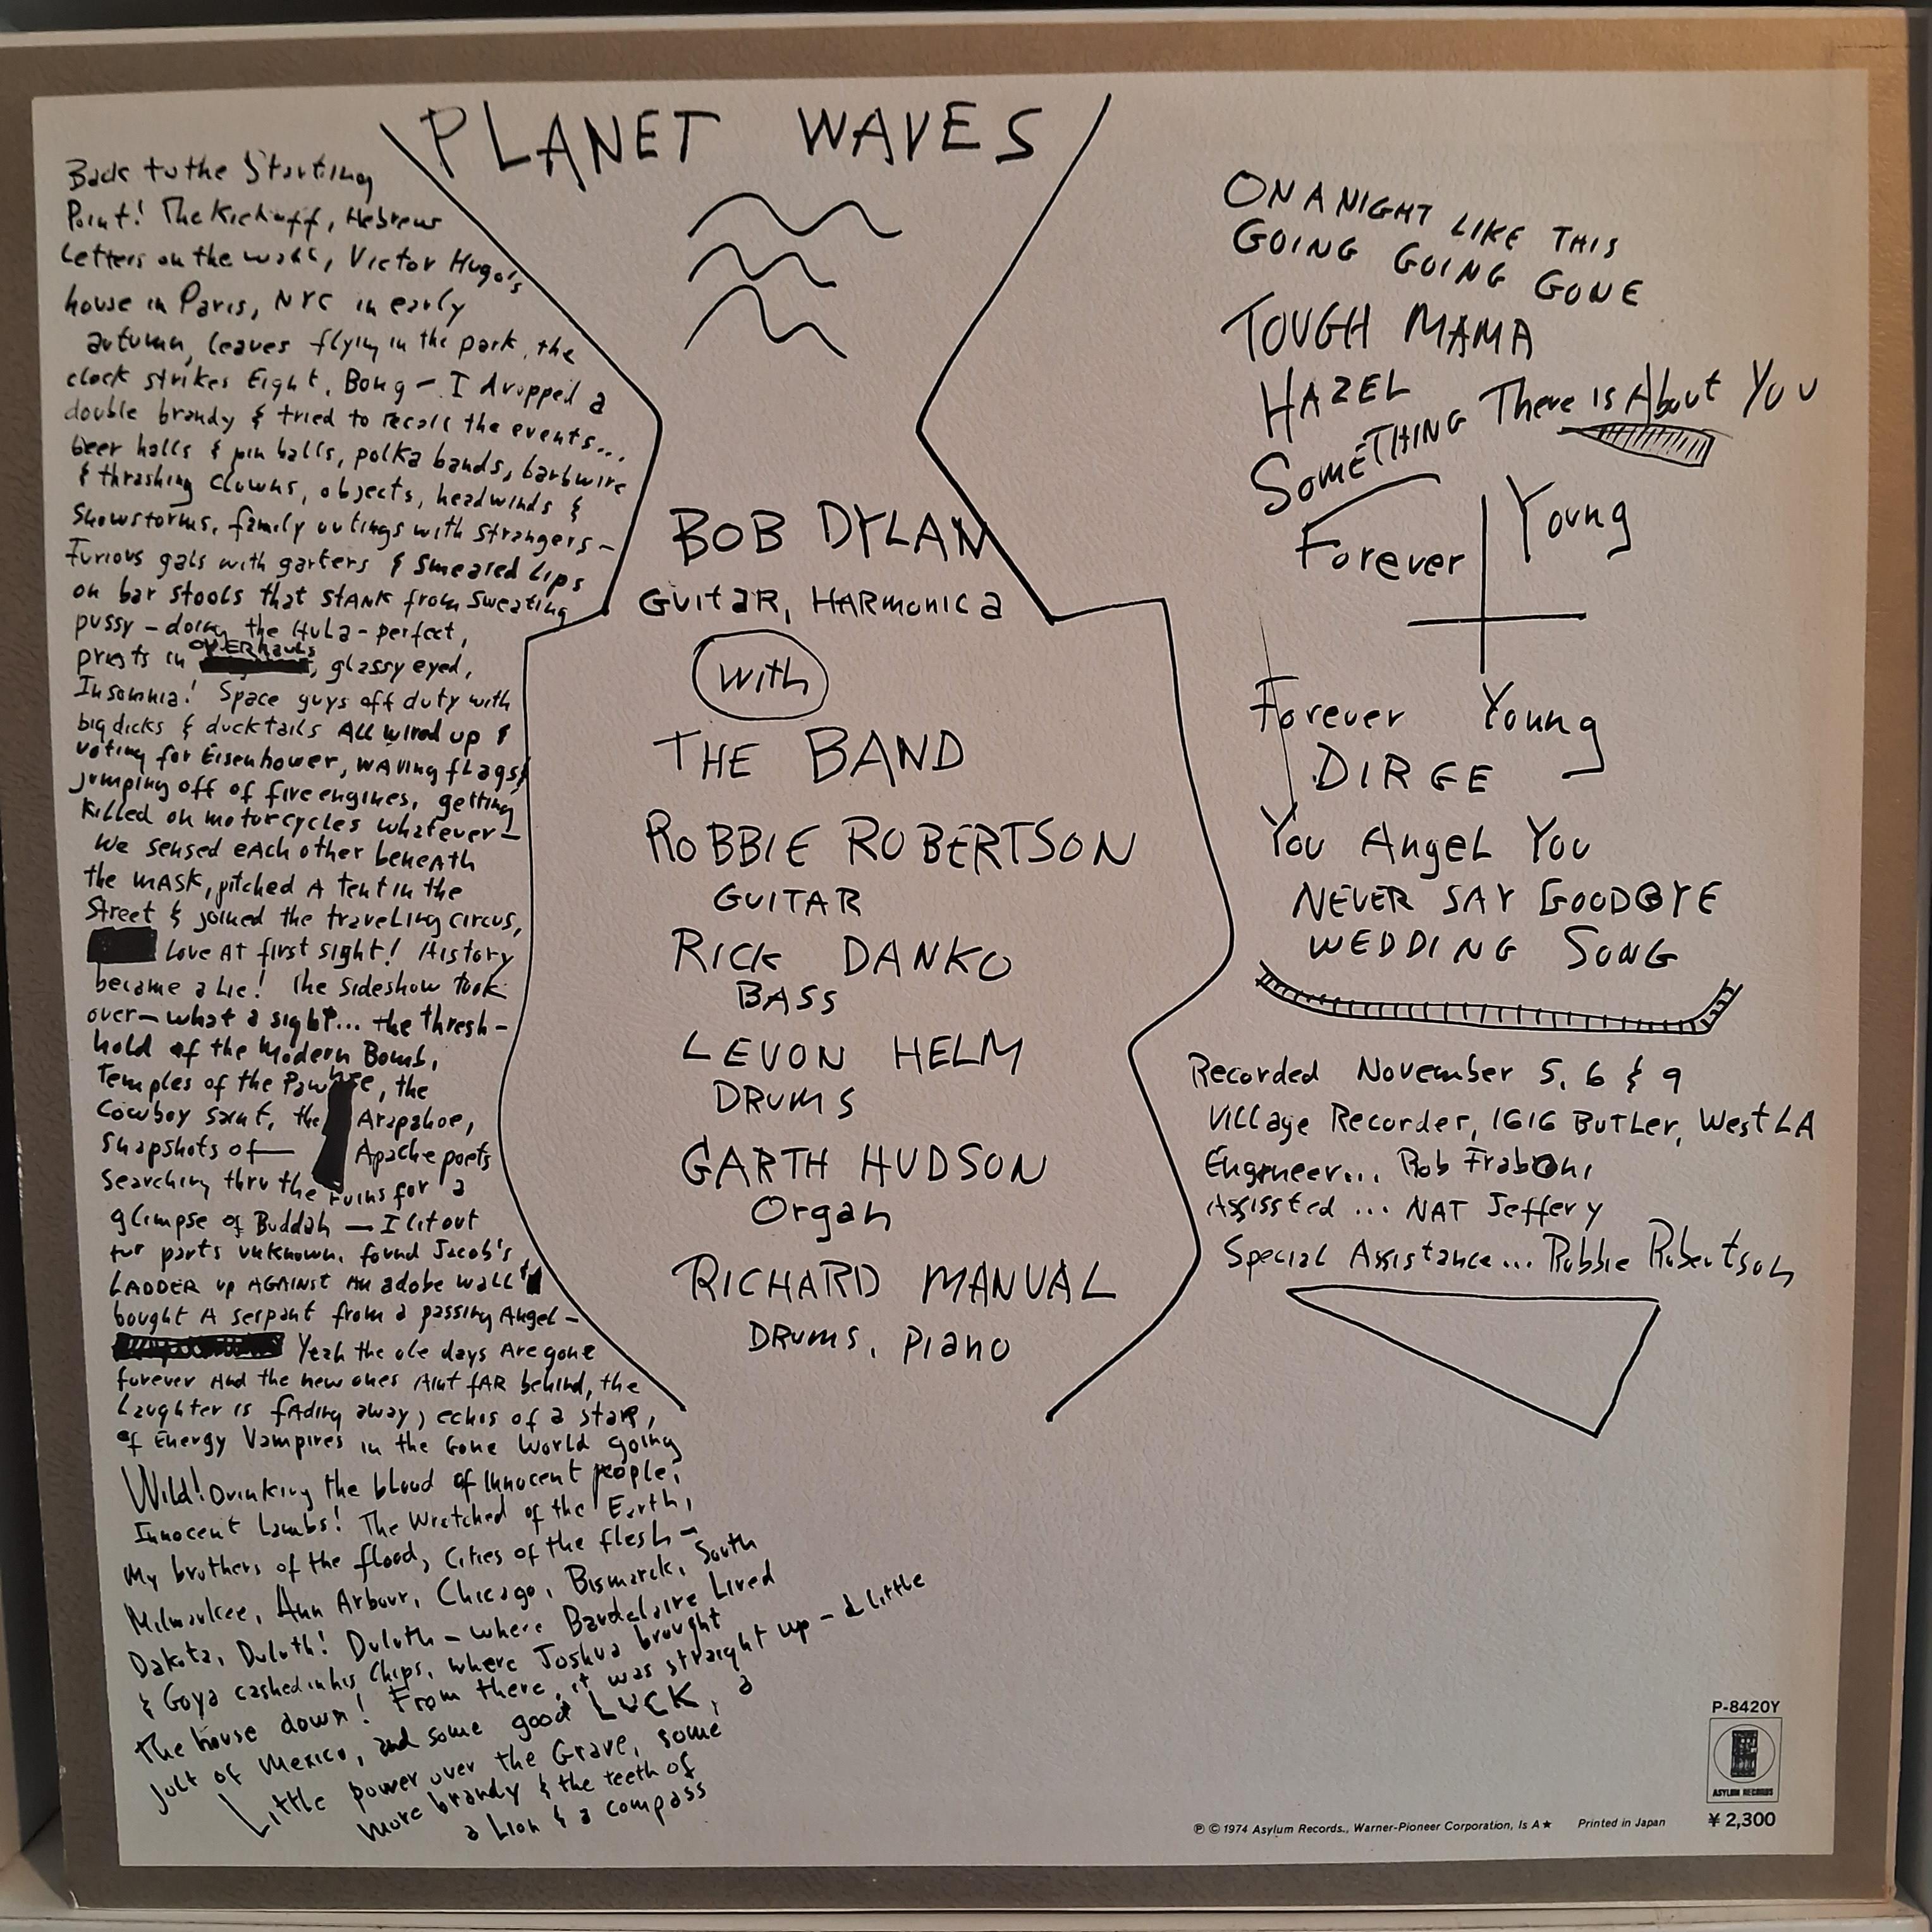 PLANET WAVES
Back to the Starting
Point! The Kickoff, Hebrew
Letters on the wall, Victor Hugo's
house in Paris, NYC in early
autumn, leaves flying in the park, the
clock strikes Eight, Bong - I dropped a
double brandy & tried to recall the events...
beer halls & pin balls, polka bands, barbwire
& thrashing clowns, objects, headwinds &
Snowstorms, family outings with strangers -
Furious gals with garters & smeared Lips
on bar stools that STANK from sweating
pussy - doing the Hula - perfect,
priests in OVERhauls, glassy eyed,
Insomnia! Space guys off duty with
big dicks & ducktails All wired up &
voting for Eisenhower, waving flags &
jumping off of fire engines, getting
killed on motorcycles whatever -
We sensed each other beneath
the MASK, pitched A tent in the
Street & joined the traveling circus,
Love At first sight! History
became a Lie! The sideshow took
over - what a sight... the thresh-
hold of the Modern Bomb,
Temples of the Pawnee, the
Cowboy saint, the Arapahoe,
snapshots of — Apache poets
searching thru the ruins for a
glimpse of Buddah — I lit out
for parts unknown, found Jacob's
LADDER up AGAINST An adobe wall &
bought A serpant from a passing Angel -
Yeah the ole days Are gone
forever And the new ones Aint fAR behind, the
Laughter is fAding away, echos of a star,
of Energy Vampires in the Gone World going
Wild! Drinking the blood of innocent people,
Innocent Lambs! The Wretched of the Earth,
My brothers of the flood, Cities of the flesh -
Milwaukee, Ann Arbour, Chicago, Bismarck, South
Dakota, Duluth! Duluth - where Baudelaire Lived
& Goya cashed in his Chips, where Joshua brought
The house down! From there, it was straight up - a Little
jolt of Mexico, and some good LUCK, a
Little power over the Grave, some
more brandy & the teeth of
a Lion & a compass
BOB DYLAN
GUITAR, HARMONICA
with
THE BAND
ROBBIE ROBERTSON
GUITAR
RICK DANKO
BASS
LEVON HELM
DRUMS
GARTH HUDSON
Organ
RICHARD MANUAL
DRUMS, PIANO
ON A NIGHT LIKE THIS
GOING GOING GONE
TOUGH MAMA
HAZEL
SOMETHING There Is About You
Forever Young
Forever Young
DIRGE
You Angel You
NEVER SAY GOODBYE
WEDDING SONG
Recorded November 5, 6 & 9
Village Recorder, 1616 BUTLer, West LA
Engineer... Rob Fraboni
Assissted... NAT Jeffery
Special Assistance... Robbie Robertson
P-8420Y
ASYLUM RECORDS
¥2,300
℗ © 1974 Asylum Records., Warner-Pioneer Corporation, Is A★ Printed in Japan